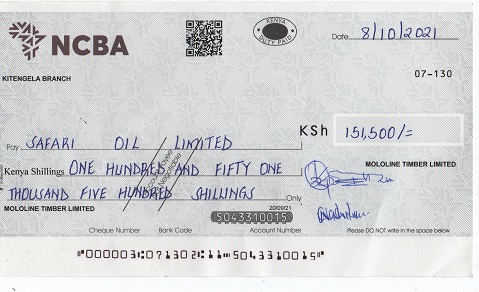 NCBA
KENYA
DUTY PAID
Date 8/10/2021
KITENGELA BRANCH
07-130
Pay SAFARI OIL LIMITED
KSh 151,500/=
Kenya Shillings ONE HUNDRED AND FIFTY ONE
MOLOLINE TIMBER LIMITED
THOUSAND FIVE HUNDRED SHILLINGS Only
MOLOLINE TIMBER LIMITED
20/09/21
5043310015
Cheque Number Bank Code Account Number Please DO NOT write in the space below
"000003:071302:11"5043310015"